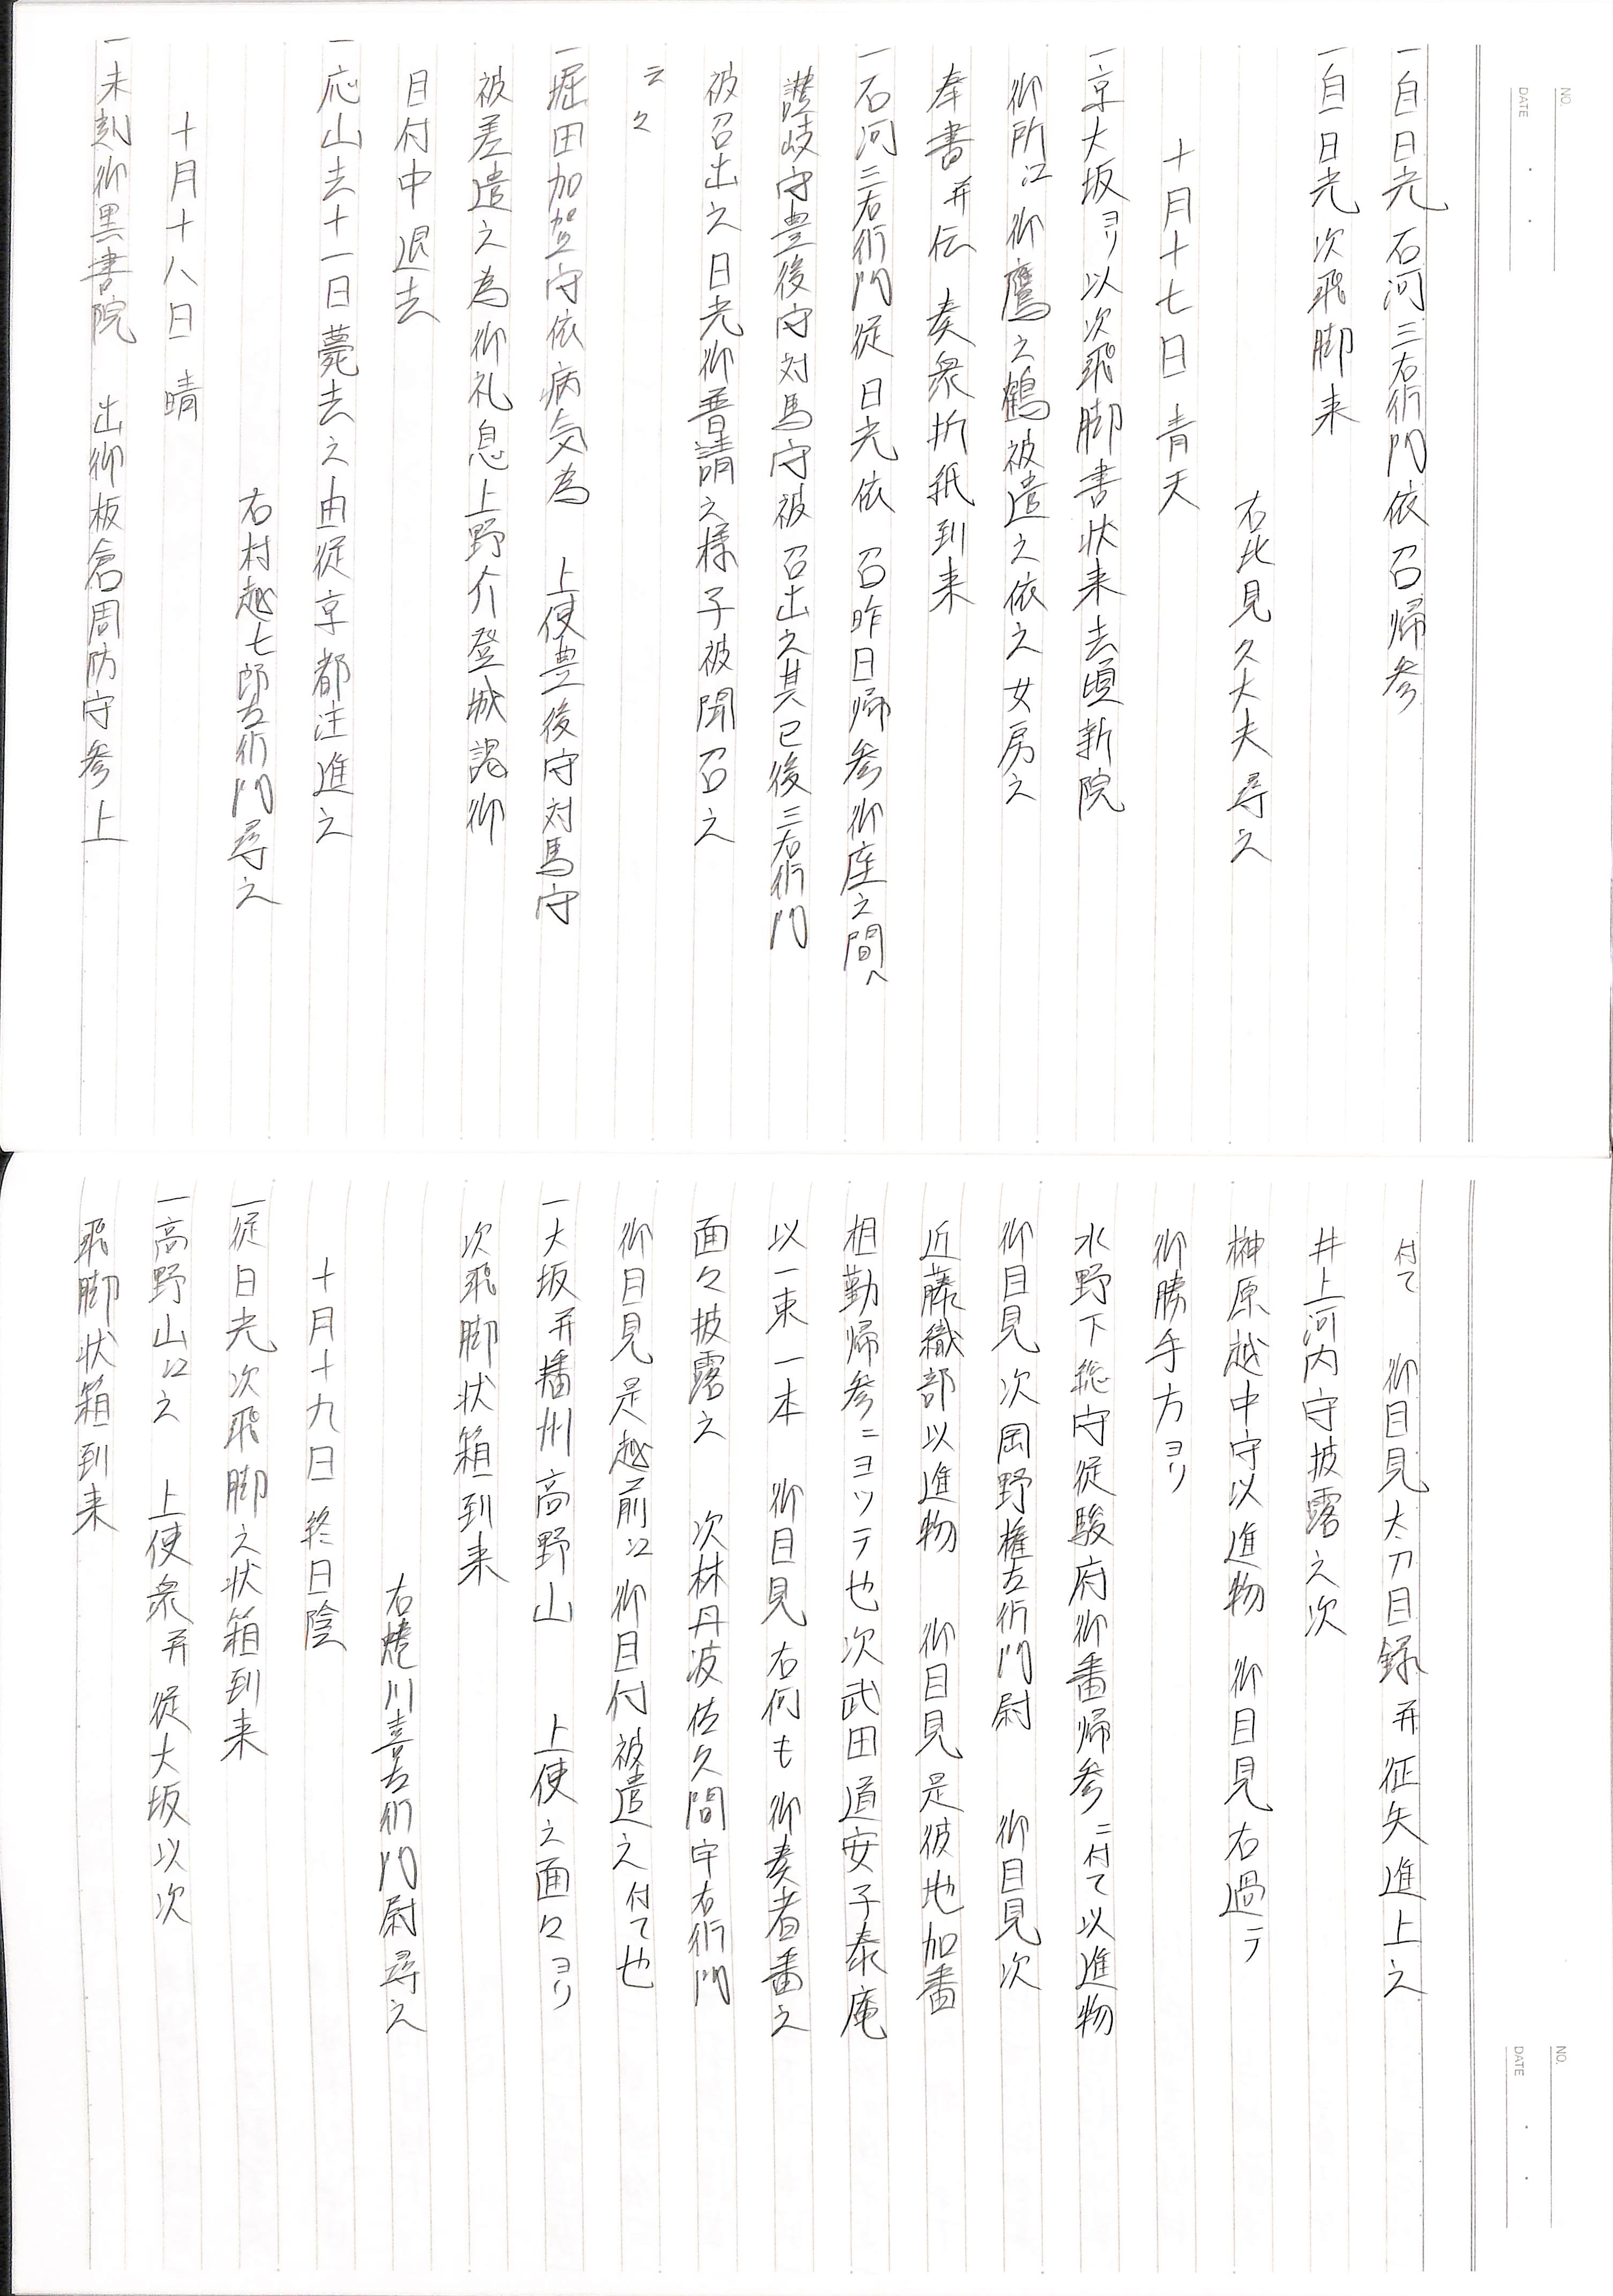 NO.
DATE
一自日光石河三右衛門依 召帰参
一自日光次飛脚来
右比見久大夫尋之
十月十七日 青天
一京大坂ヨリ以次飛脚書状来去頃新院
御所江御鷹之鶴被遣之依之女房之
奉書并伝 奏衆折紙到来
一石河三右衛門従日光依 召昨日帰参御座之間へ
讃岐守豊後守対馬守被 召出之其已後三右衛門
被召出之日光御普請之様子被聞召之
云々
一堀田加賀守依病気為 上使豊後守対馬守
被差遣之為御礼息上野介登城謁御
目付中退去
一応山去十一日薨去之由従京都注進之
右村越七郎左衛門尋之
十月十八日 晴
一未刻御黒書院 出御板倉周防守参上
NO.
DATE
付て 御目見太刀目録并征矢進上之
井上河内守披露之次
榊原越中守以進物 御目見右過テ
御勝手方ヨリ
水野下総守従駿府御番帰参ニ付て以進物
御目見次岡野権左衛門尉 御目見次
近藤織部以進物 御目見是彼地加番
相勤帰参ニヨツテ也次武田道安子泰庵
以一束一本 御目見右何も御奏者番之
面々披露之 次林丹波佐久間宇右衛門
御目見是越前江御目付被遣之付て也
一大坂并播州高野山 上使之面々ヨリ
次飛脚状箱到来
右蜷川喜左衛門尉尋之
十月十九日 終日陰
一従日光次飛脚之状箱到来
一高野山江之 上使衆并従大坂以次
飛脚状箱到来